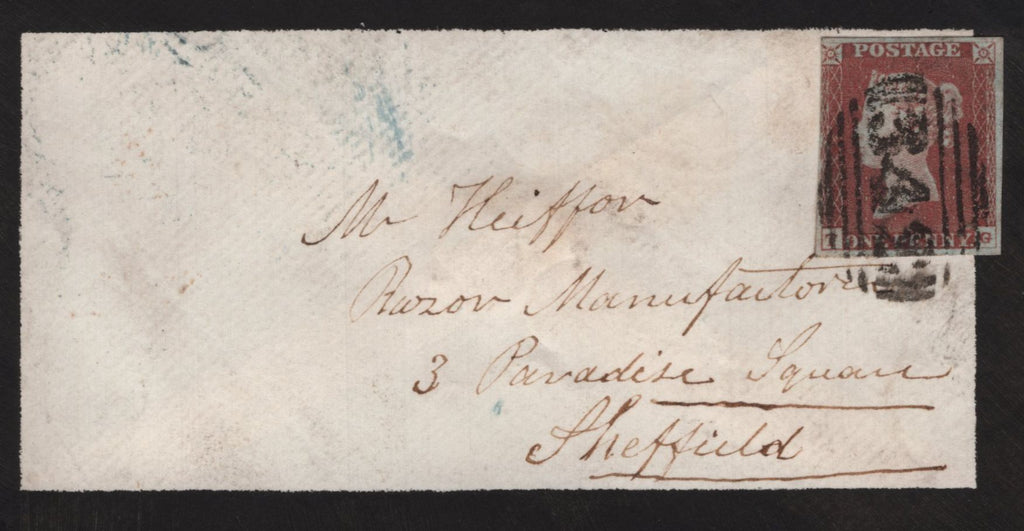 POSTAGE
T ONE PENNY G
Mr Heiffor
Razor Manufactore
3 Paradise Square
Sheffield